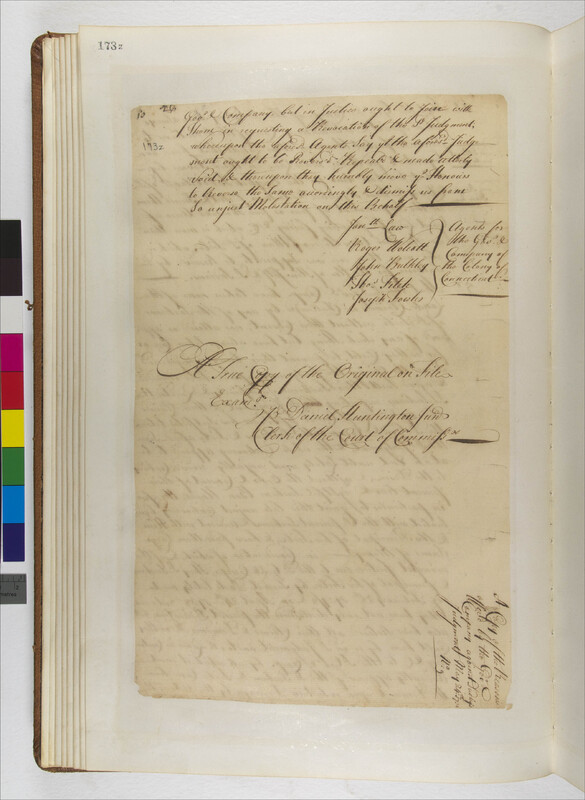 173z
173z
Govr. & Company but in Justice ought to Join with
them in requesting a Revocation of the sd. Judgment,
whereupon the Responds. Agents Say yt. the aforesd. Judg-
ment ought to be Revers'd Repeal'd & made utterly
void & thereupon they humbly move yr. Honours
to Revoke the Same accordingly & dismiss us from
So unjust Molestation on this Behalf
Jonth. Law
Roger Wolcott
John Bulkley
Thos. Fitch
Joseph Fowler
Agents for
the Gov. &
Company of
the Colony of
Connecticut
A True Copy of the Original on File
Examd.
pr Daniel Huntington Junr.
Clerk of the Court of Commissrs
A Copy of the Reasons
offerd by the Govr. &
Company against
Judgment May
No.